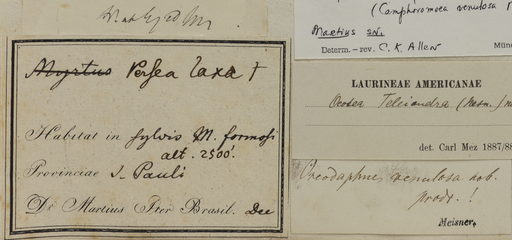 Myrtus Persea laxa †
Habitat in sylvis M. formosi
alt. 2500'.
Provinciae S. Pauli
Dr Martius Iter Brasil. Dec
(Camphoromoea venulosa
Martius sn.
Determ. - rev. C. K. Allen
LAURINEAE AMERICANAE
Ocotea Teleiandra (Meisn.)
det. Carl Mez 1887/88
Oreodaphne venulosa nob.
prodr. !
Meisner.